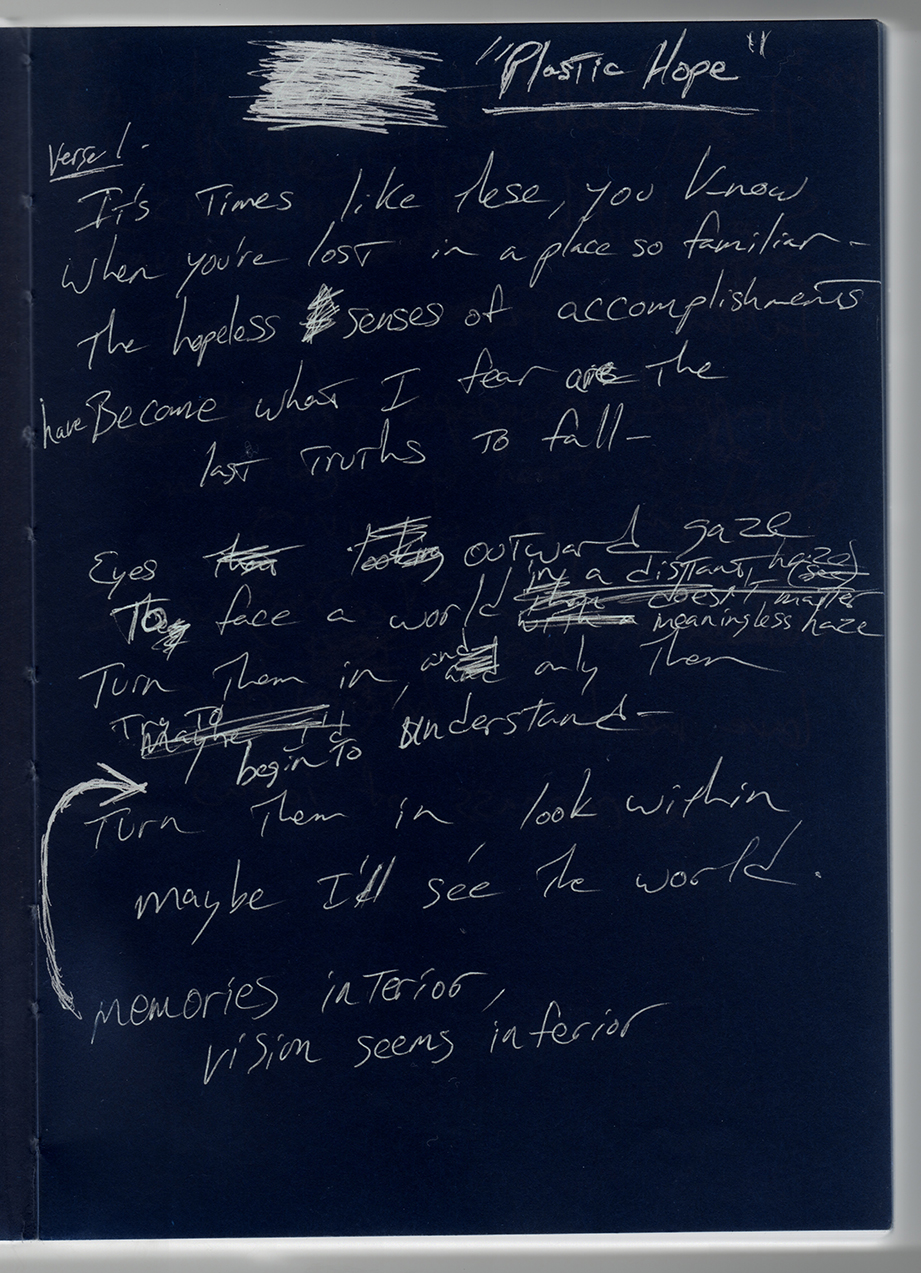 "Plastic Hope"
Verse 1-
It's Times like these, you know
when you're lost in a place so familiar-
The hopeless senses of accomplishments
have Become what I fear are the
last Truths To fall-
Eyes outward gaze
in a distant haze
To face a world doesn't matter
meaningless haze
Turn Them in, and only Them
Try To
Maybe I'll
begin To understand-
Turn Them in look within
maybe I'll see the world.
memories inTerior,
vision seems inferior